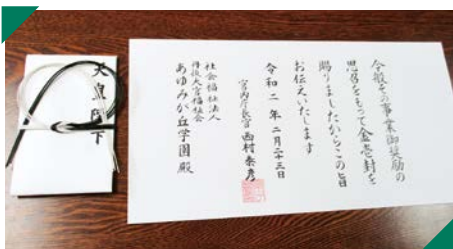 今般その事業御奨励の
思召をもって金壱封を
賜りましたからこの旨
お伝えいたします
令和二年二月二十三日
宮内庁長官 西村泰彦
社会福祉法人
あゆみが丘学園 殿
天皇陛下